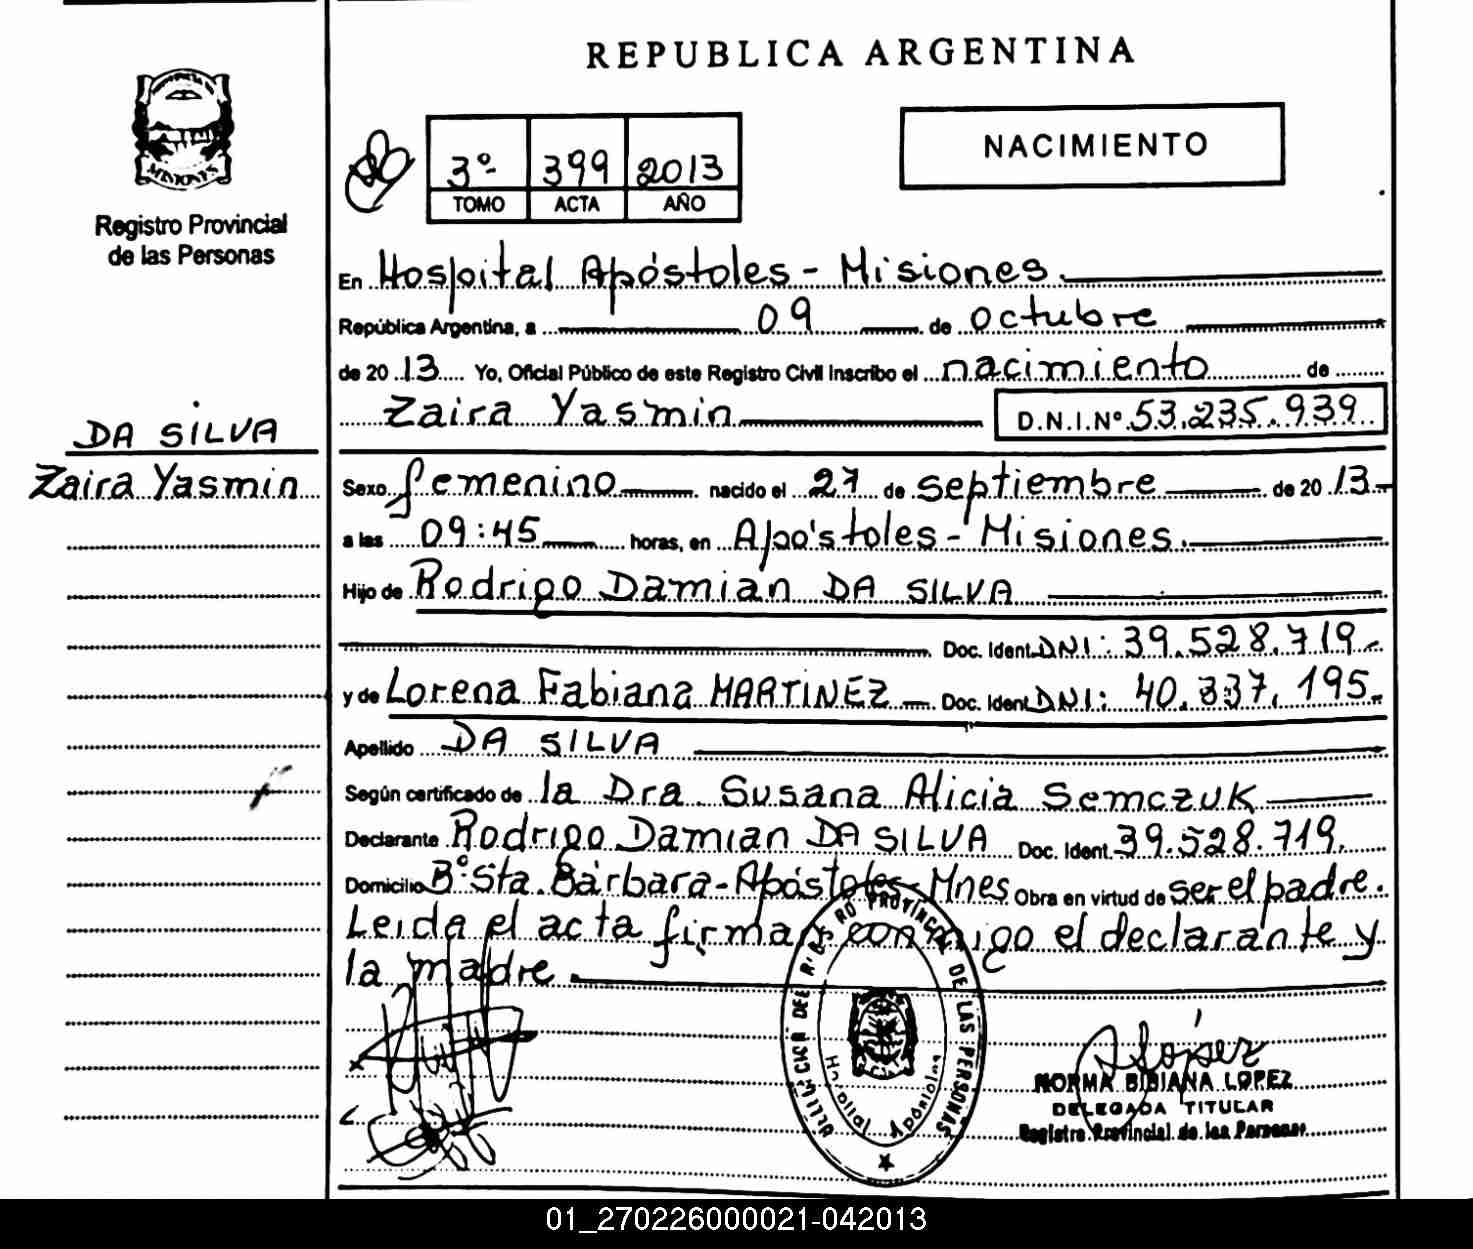 REPUBLICA ARGENTINA
MISIONES
Registro Provincial
de las Personas
3º 399 2013
TOMO ACTA AÑO
NACIMIENTO
En Hospital Apóstoles - Misiones.
República Argentina, a 09 de octubre
de 2013 Yo, Oficial Público de este Registro Civil Inscribo el nacimiento de
Zaira Yasmin D.N.I.Nº 53.235.939
DA SILVA
Zaira Yasmin
Sexo femenino nacido el 27 de septiembre de 2013
a las 09:45 horas, en Apóstoles - Misiones.
Hijo de Rodrigo Damian DA SILVA
Doc. Ident. DNI: 39.528.719.
y de Lorena Fabiana MARTINEZ Doc. Ident. DNI: 40.337.195.
Apellido DA SILVA
Según certificado de la Dra. Susana Alicia Semczuk
Declarante Rodrigo Damian DA SILVA Doc. Ident. 39.528.719.
Domicilio Bº Sta. Bárbara - Apóstoles - Mnes Obra en virtud de ser el padre.
Leida el acta firman conmigo el declarante y
la madre.
PROVINCIAL DE LAS PERSONAS
Hospital Apóstoles
López
NORMA BIBIANA LOPEZ
DELEGADA TITULAR
Registro Provincial de las Personas
01_270226000021-042013